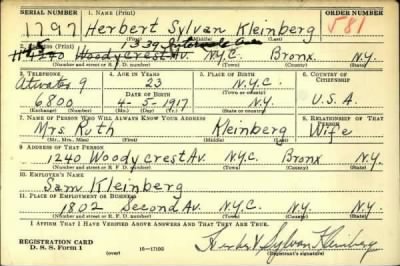 SERIAL NUMBER 1. NAME (Print) ORDER NUMBER
1797 Herbert Sylvan Kleinberg 581
(First) (Middle) (Last)
1339
2. (Print)
1240 Woodycrest Av. N.Y.C. Bronx. N.Y.
(Number and street or R. F. D. number) (Town) (County) (State)
3. TELEPHONE 4. AGE IN YEARS 5. PLACE OF BIRTH 6. COUNTRY OF CITIZENSHIP
9 23 N.Y.C.
6800 DATE OF BIRTH (Town or county)
4-5-1917 N.Y. U.S.A.
(Exchange) (Number) (Mo.) (Day) (Yr.) (State or country)
7. NAME OF PERSON WHO WILL ALWAYS KNOW YOUR ADDRESS 8. RELATIONSHIP OF THAT PERSON
Mrs. Ruth Kleinberg Wife
(Mr., Mrs., Miss) (First) (Middle) (Last)
9. ADDRESS OF THAT PERSON
1240 Woodycrest Av. N.Y.C. Bronx N.Y.
(Number and street or R. F. D. number) (Town) (County) (State)
10. EMPLOYER'S NAME
Sam Kleinberg
11. PLACE OF EMPLOYMENT OR BUSINESS
1802 Second Av. N.Y.C. N.Y.
(Number and street or R. F. D. number) (Town) (County) (State)
I AFFIRM THAT I HAVE VERIFIED ABOVE ANSWERS AND THAT THEY ARE TRUE.
REGISTRATION CARD
D. S. S. Form 1 (over) 16-17105 Herbert Sylvan Kleinberg
(Registrant's signature)